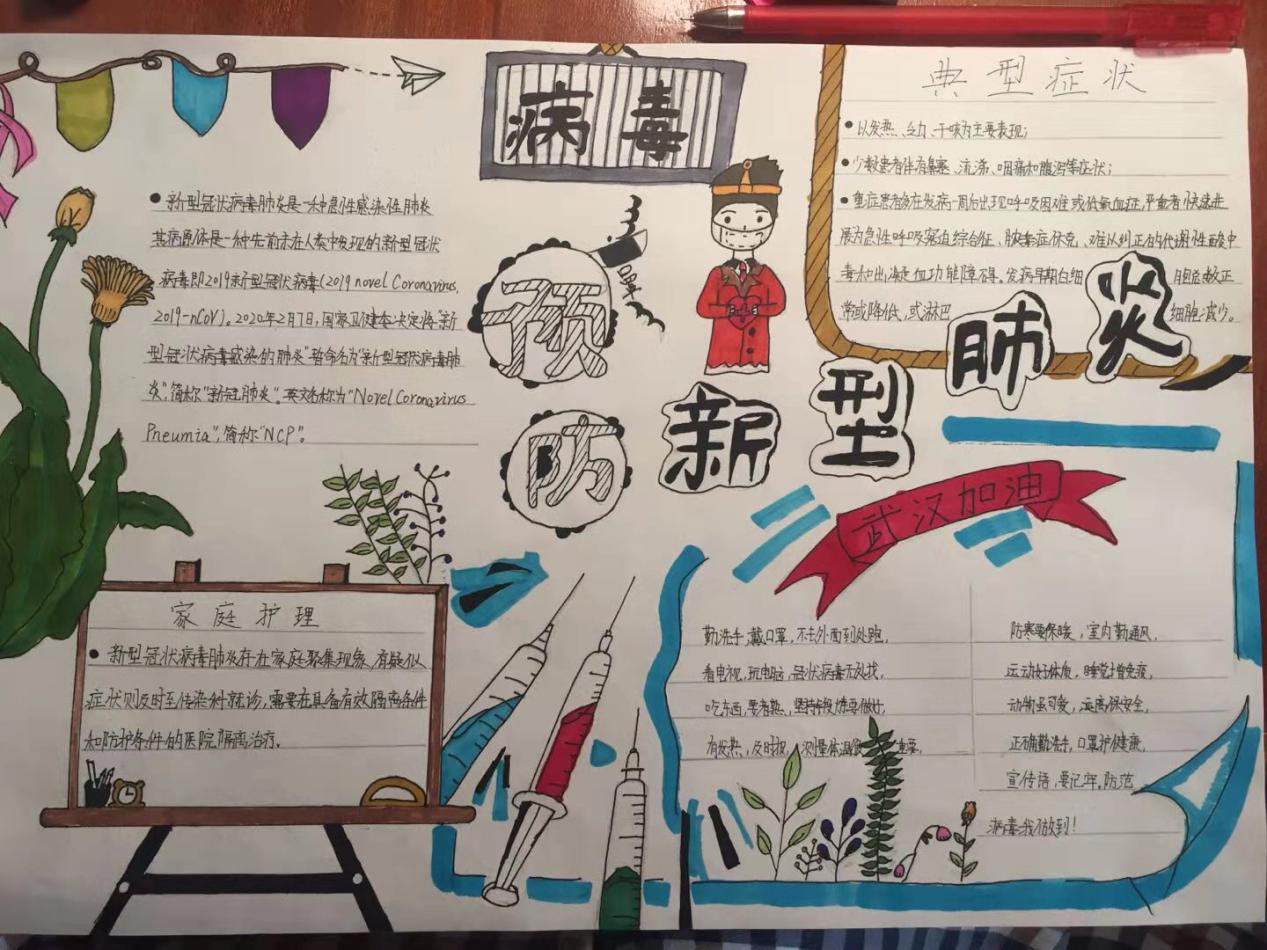 病毒
预防新型肺炎
口罩
新型冠状病毒肺炎是一种急性感染性肺炎
其病原体是一种先前未在人类中发现的新型冠状
病毒即2019新型冠状病毒(2019 novel Coronavirus,
2019-nCoV)。2020年2月7日,国家卫健委决定将"新
型冠状病毒感染的肺炎"暂命名为"新型冠状病毒肺
炎",简称"新冠肺炎"。英文名称为"Novel Coronavirus
Pneumia",简称"NCP"。
典型症状
以发热、乏力、干咳为主要表现;
少数患者伴有鼻塞、流涕、咽痛和腹泻等症状;
重症患者多在发病一周后出现呼吸困难或低氧血症,严重者快速进
展为急性呼吸窘迫综合征、脓毒症休克、难以纠正的代谢性酸中
毒和出凝血功能障碍。发病早期白细胞总数正
常或降低,或淋巴细胞减少。
武汉加油
家庭护理
新型冠状病毒肺炎存在家庭聚集现象,有疑似
症状则及时至传染科就诊,需要在具备有效隔离条件
和防护条件的医院隔离治疗。
勤洗手,戴口罩,不去外面到处跑,
看电视,玩电脑,冠状病毒无处找,
吃东西,要煮熟,坚持锻炼要做好,
有发热,及时报,测量体温很重要,
防寒要保暖,室内勤通风,
运动好体质,睡觉增免疫,
动物虽可爱,远离保安全,
正确勤洗手,口罩护健康,
宣传语,要记牢,防范
病毒我做到!